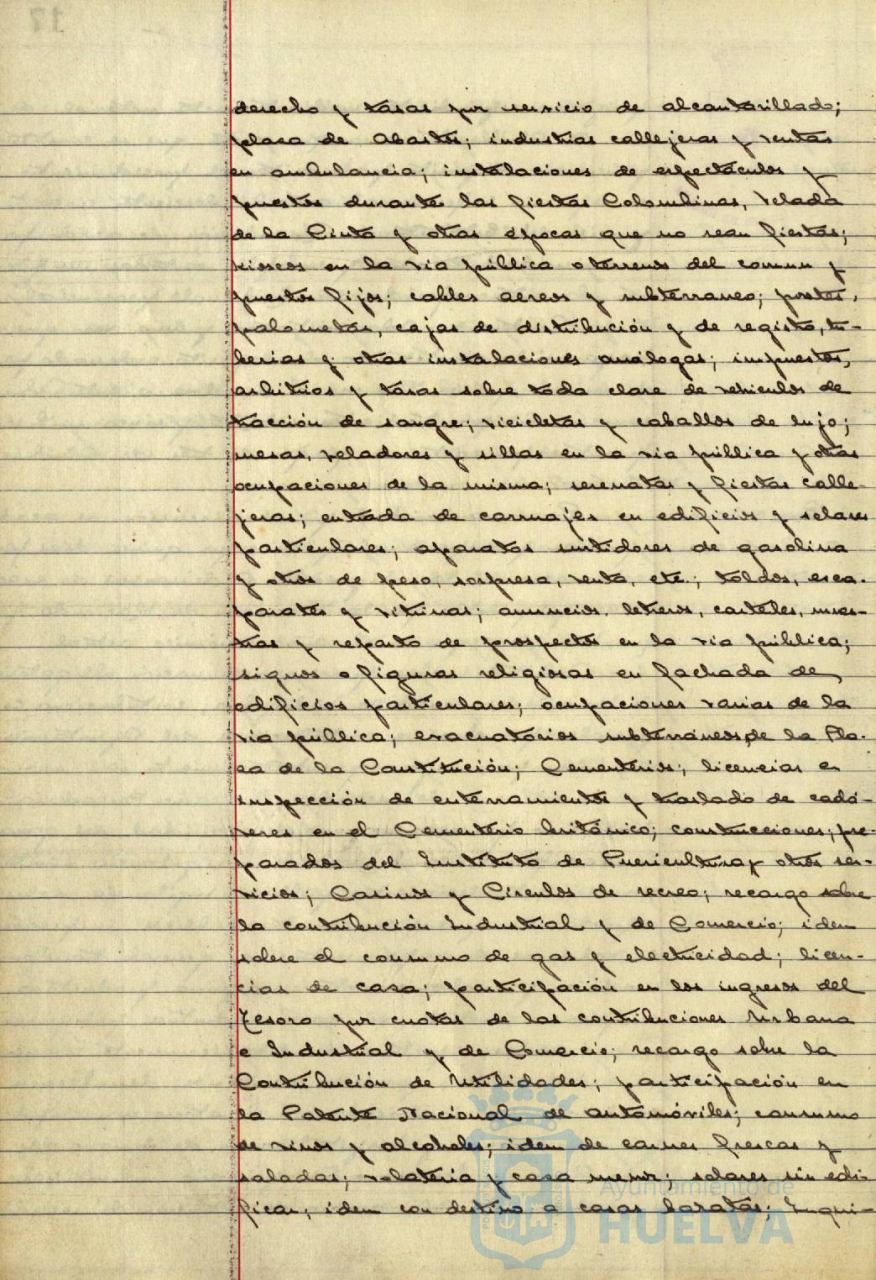 17
derecho y tasas por servicio de alcantarillado;
plasa de Abastos; industrias callejeras y ventas
en ambulancia; instalaciones de espectáculos y
puestos durante las fiestas Colombinas, Velada
de la Cinta y otras épocas que no sean fiestas;
kioscos en la via pública o terrenos del comun y
puestos fijos; cables aereos y subterraneo; postes,
palometas, cajas de distribución y de registro, tu-
berias y otras instalaciones análogas; impuestos,
arbitrios y tasas sobre toda clase de vehiculos de
tracción de sangre; vicicletas y caballos de lujo;
mesas, veladores y sillas en la via pública y otras
ocupaciones de la misma; serenatas y fiestas calle-
jeras; entrada de carruajes en edificios y solares
particulares; aparatos surtidores de gasolina
y otros de peso, sorpresa, venta, etc.; toldos, esca-
parates y vitrinas; anuncios, letreros, carteles, mues-
tras y reparto de prospectos en la via pública;
signos o figuras religiosas en fachada de
edificios particulares; ocupaciones varias de la
via pública; evacuatorios subterráneos, de la Pla-
sa de la Constitución; Cementerios; licencias e
inspección de enterramientos y traslado de cadá-
veres en el Cementerio británico; construcciones; pre-
parados del Instituto de Puericultura y otros ser-
vicios; Casinos y Circulos de recreo; recargo sobre
la contribución Industrial y de Comercio; idem
sobre el consumo de gas y electricidad; licen-
cias de casa; participación en los ingresos del
Tesoro por cuotas de las contribuciones Urbana
e Industrial y de Comercio; recargo sobre la
Contribución de Utilidades; participación en
la Patente Nacional de automóviles; consumo
de vinos y alcoholes; idem de carnes frescas y
saladas; volateria y casa menor; solares sin edi-
ficar; idem con destino a casas baratas; Inqui-
Ayuntamiento de
HUELVA